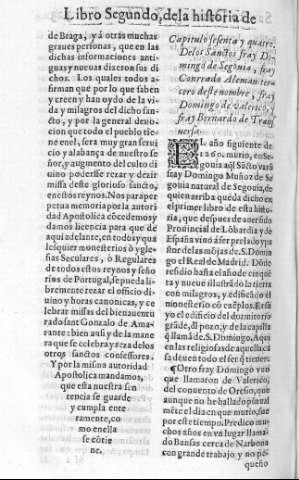 Libro Segundo, de la historia de
de Braga, y à otras muchas
graues personas, que en las
dichas informaciones anti
guas y nueuas dixeron sus di
chos. Los quales todos a-
firman que por lo que saben
y creen y han oydo de la vi
da y milagros del dicho san-
cto, y por la general deuo-
cion que todo el pueblo tie
ne en el, sera muy gran serui
cio y alabança de nuestro se
ñor, y augmento del culto di
uino poderse rezar y dezir
missa deste glorioso sancto,
en estos reynos. Nos para per
petua memoria por la autori
dad Apostolica cōcedemos y
damos licencia para que de
aqui adelante, en todos y qua
lesquier monesterios ò ygle-
sias Seculares, ò Regulares
de todos estos reynos y seño
rios de Portugal, se pueda li-
bremente rezar el officio di-
uino y horas canonicas, y ce
lebrar missas del bienauentu
rado sant Gonzalo de Ama-
rante: bien ansi y de la mane
ra que se celebra y reza de los
otros sanctos confessores.
Y por la misma autoridad
Apostolica mandamos,
que esta nuestra sen
tencia se guarde
y cumpla ente
ramente, co
mo en ella
se cōtie
ne.
Capitulo sesenta y quatro,
De los Sanctos fray Do
mingo de Segouia, fray
Conrrado Aleman ter
cero deste nombre, fray
Domingo de Valerico y
fray Bernardo de Trans
uersa.
EL año siguiente de
1260. murio, en Se-
gouia aquel Sancto varō
fray Domingo Muñoz de Se
gouia natural de Segouia, de
quien arriba queda dicho en
el primer libro de esta histo-
ria, que despues de auer sido
Prouincial de Lōbardia y de
España vino à ser prelado y pa
stor de las mōjas de S. Domin
go el Real de Madrid. Dōde
residio hasta el año de cinquē
ta y nueue illustrādo la tierra
con milagros, y edificādo el
monesterio cō exemplos. Era
yo el edificio del dormitorio
grāde, el pozo, y de la capilla
q̄ llamā de S. Domingo. Aqui
en las religiosas de aquella ca
sa deuen todo el ser q̄ tienen.
¶ Otro fray Domingo vuo
que llamaron de Valerico,
del conuento de Orense, que
aunque no he hallado pun tual
mēte el dia en que murio, fue
por este tiempo. Predico mu
chos años en vn lugar llama
do Bansas cerca de Narbona
con grande trabajo y no pe
queño